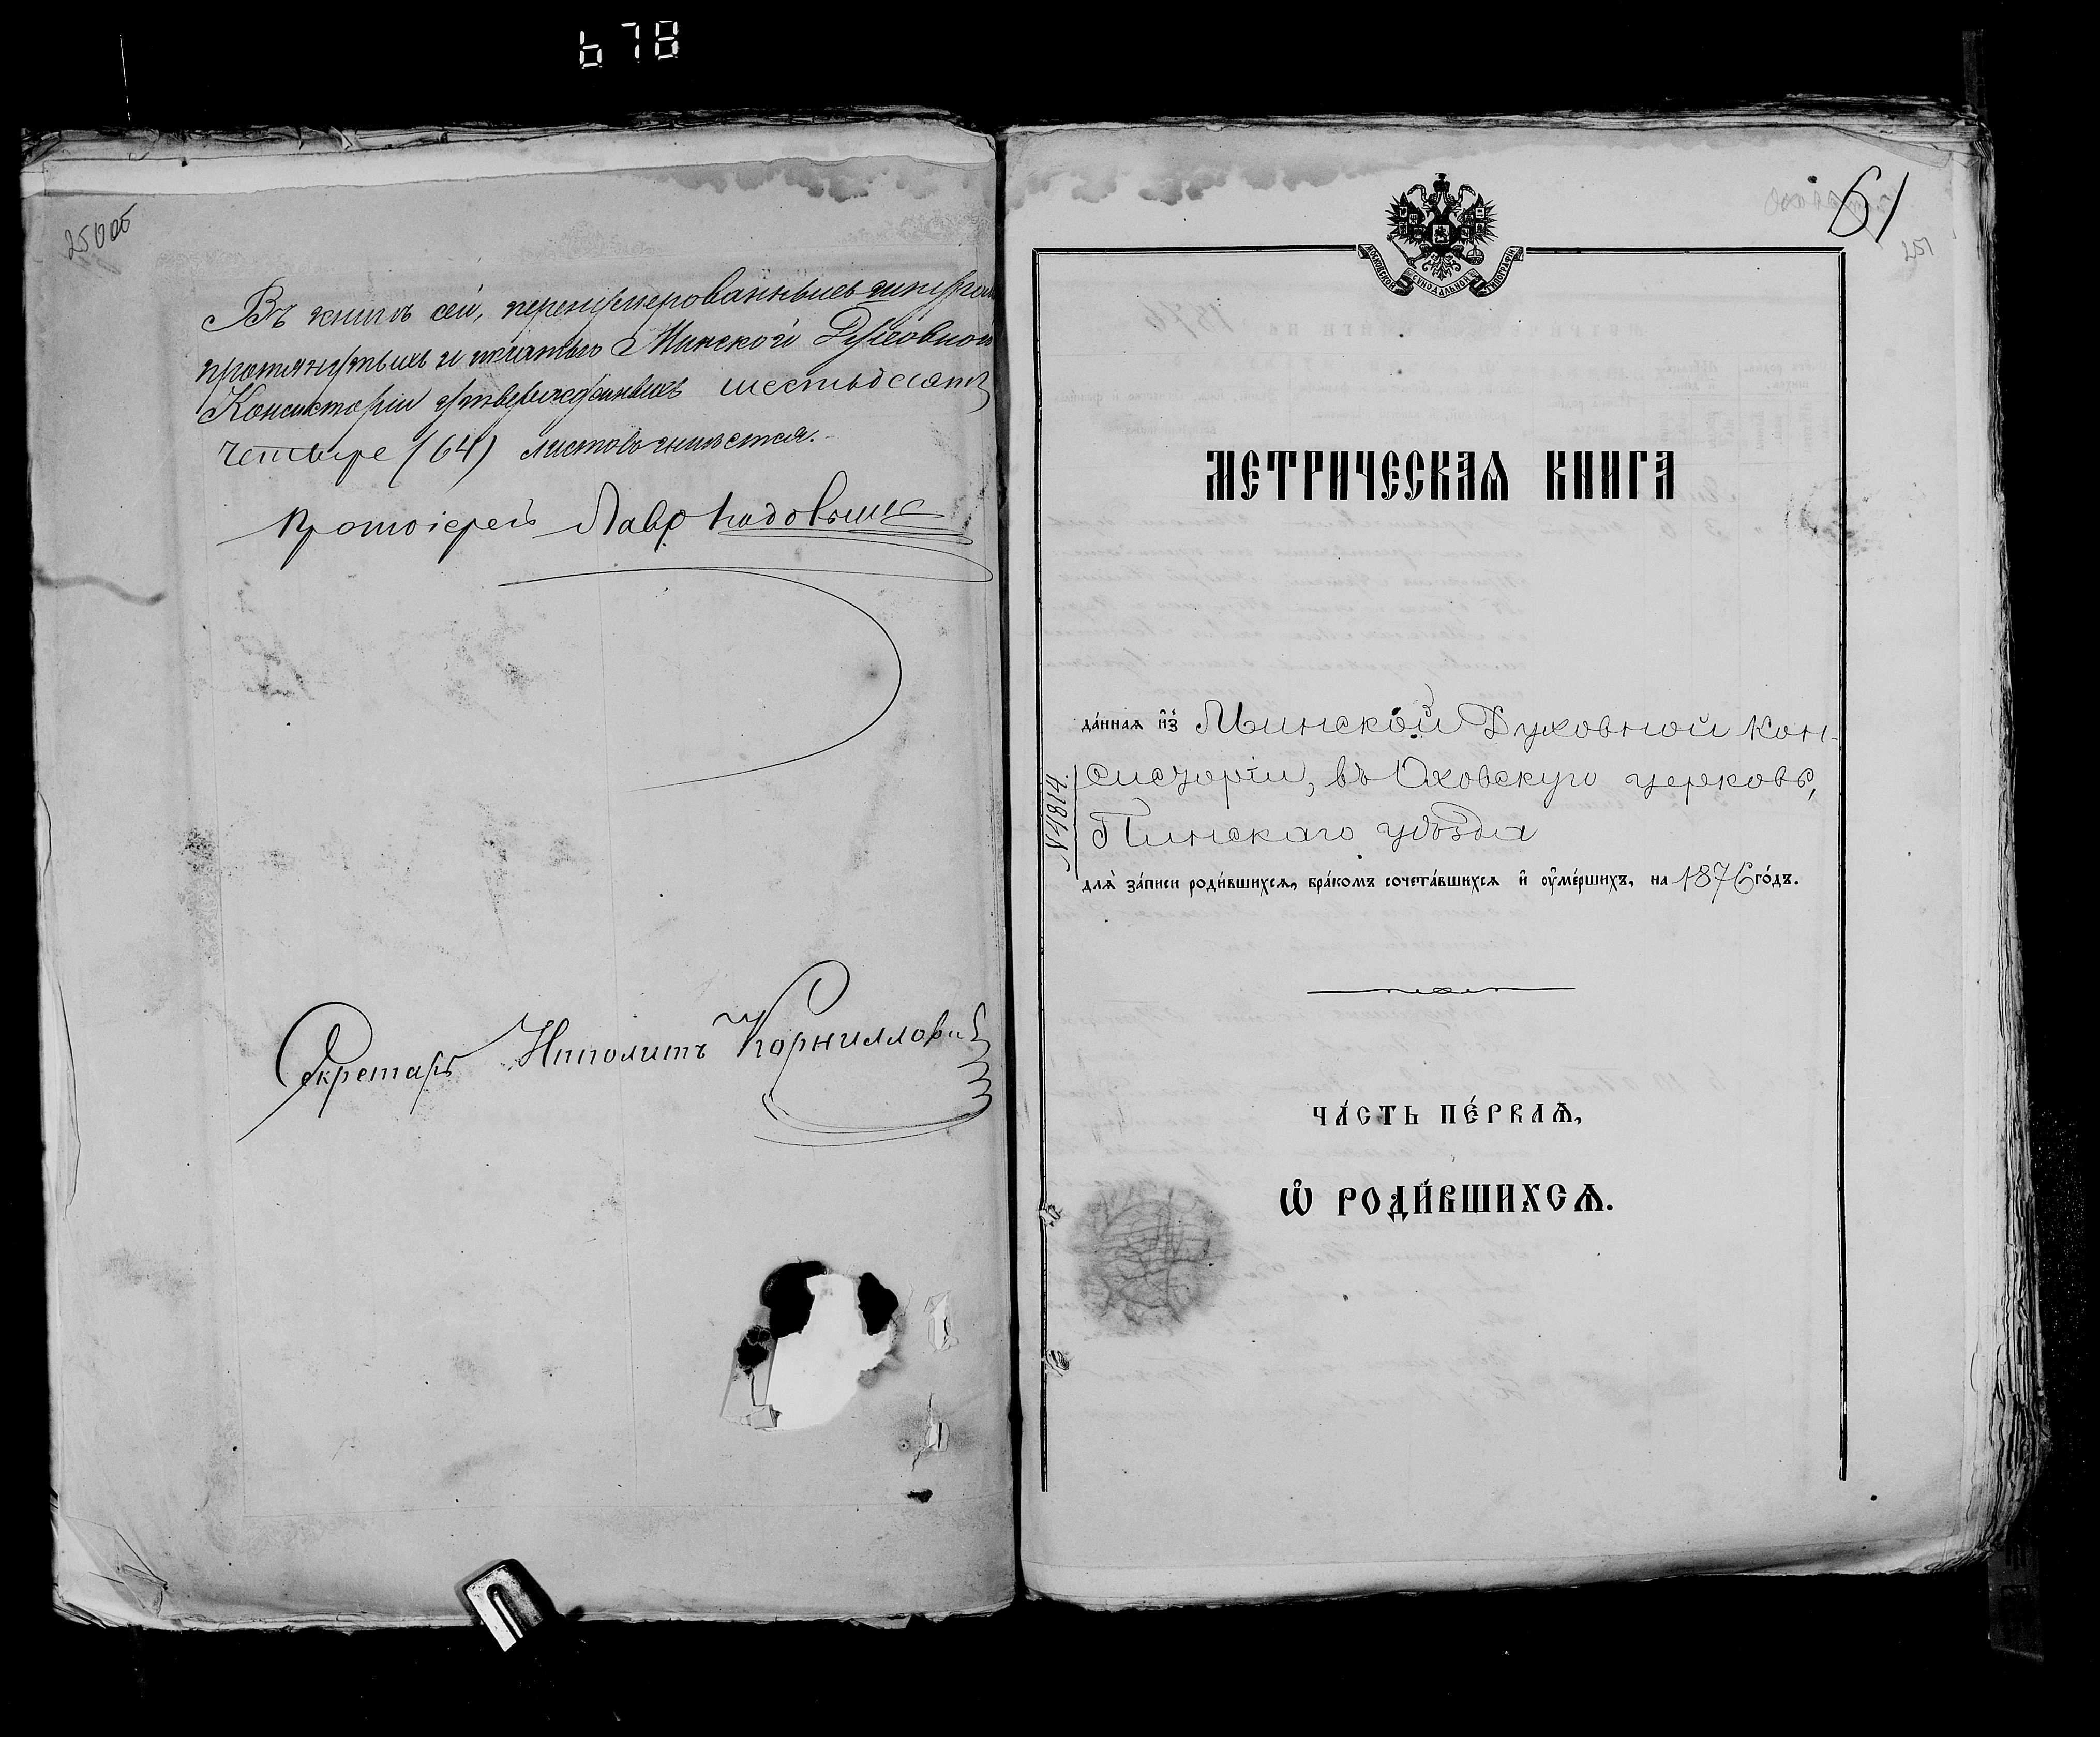 678
250об
Въ книгѣ сей, перенумерованныхъ шнуромъ
протянутыхъ и печатью Минской Духовной
Консисторіи утвержденныхъ шестьдесятъ
четыре (64) листовъ числится.
Протоіерей Лавр
Секретарь Иполитъ Корнилловичъ
61
251
МОСКОВСКОЙ СѴНОДАЛЬНОЙ ТИПОГРАФІИ
МЕТРИЧЕСКАѦ КНИГА
да́ннаѧ и҆з̾ Минской Духовной Кон-
систоріи, въ Оховскую церковь,
Пинскаго уѣзда
№ 1814.
длѧ̀ за́писи роди́вшихсѧ, бра́комъ сочета́вшихсѧ и҆ ᲂу҆ме́ршихъ, на 1876 го́дъ.
ЧА́СТЬ ПЕ́РВАѦ,
Ѽ РОДИ́ВШИХСѦ.